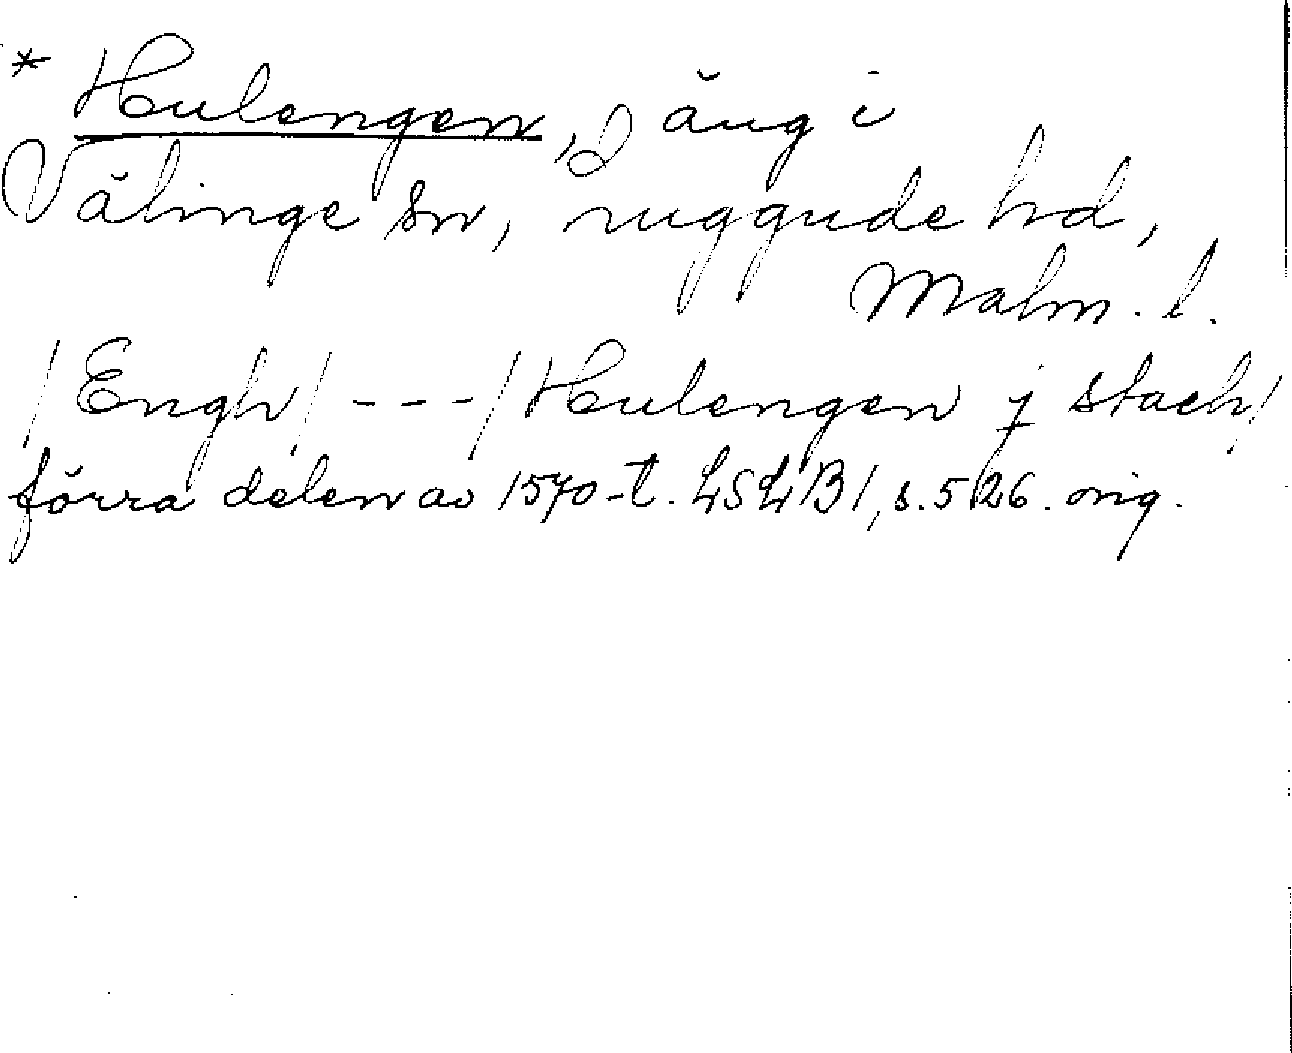 * Hulengen, äng i
Välinge sn, Luggude hd,
Malm. l.
/Engh/ - - - / Hulengen j stach/
förra delen av 1570-t. LSLB1, s. 526. orig.